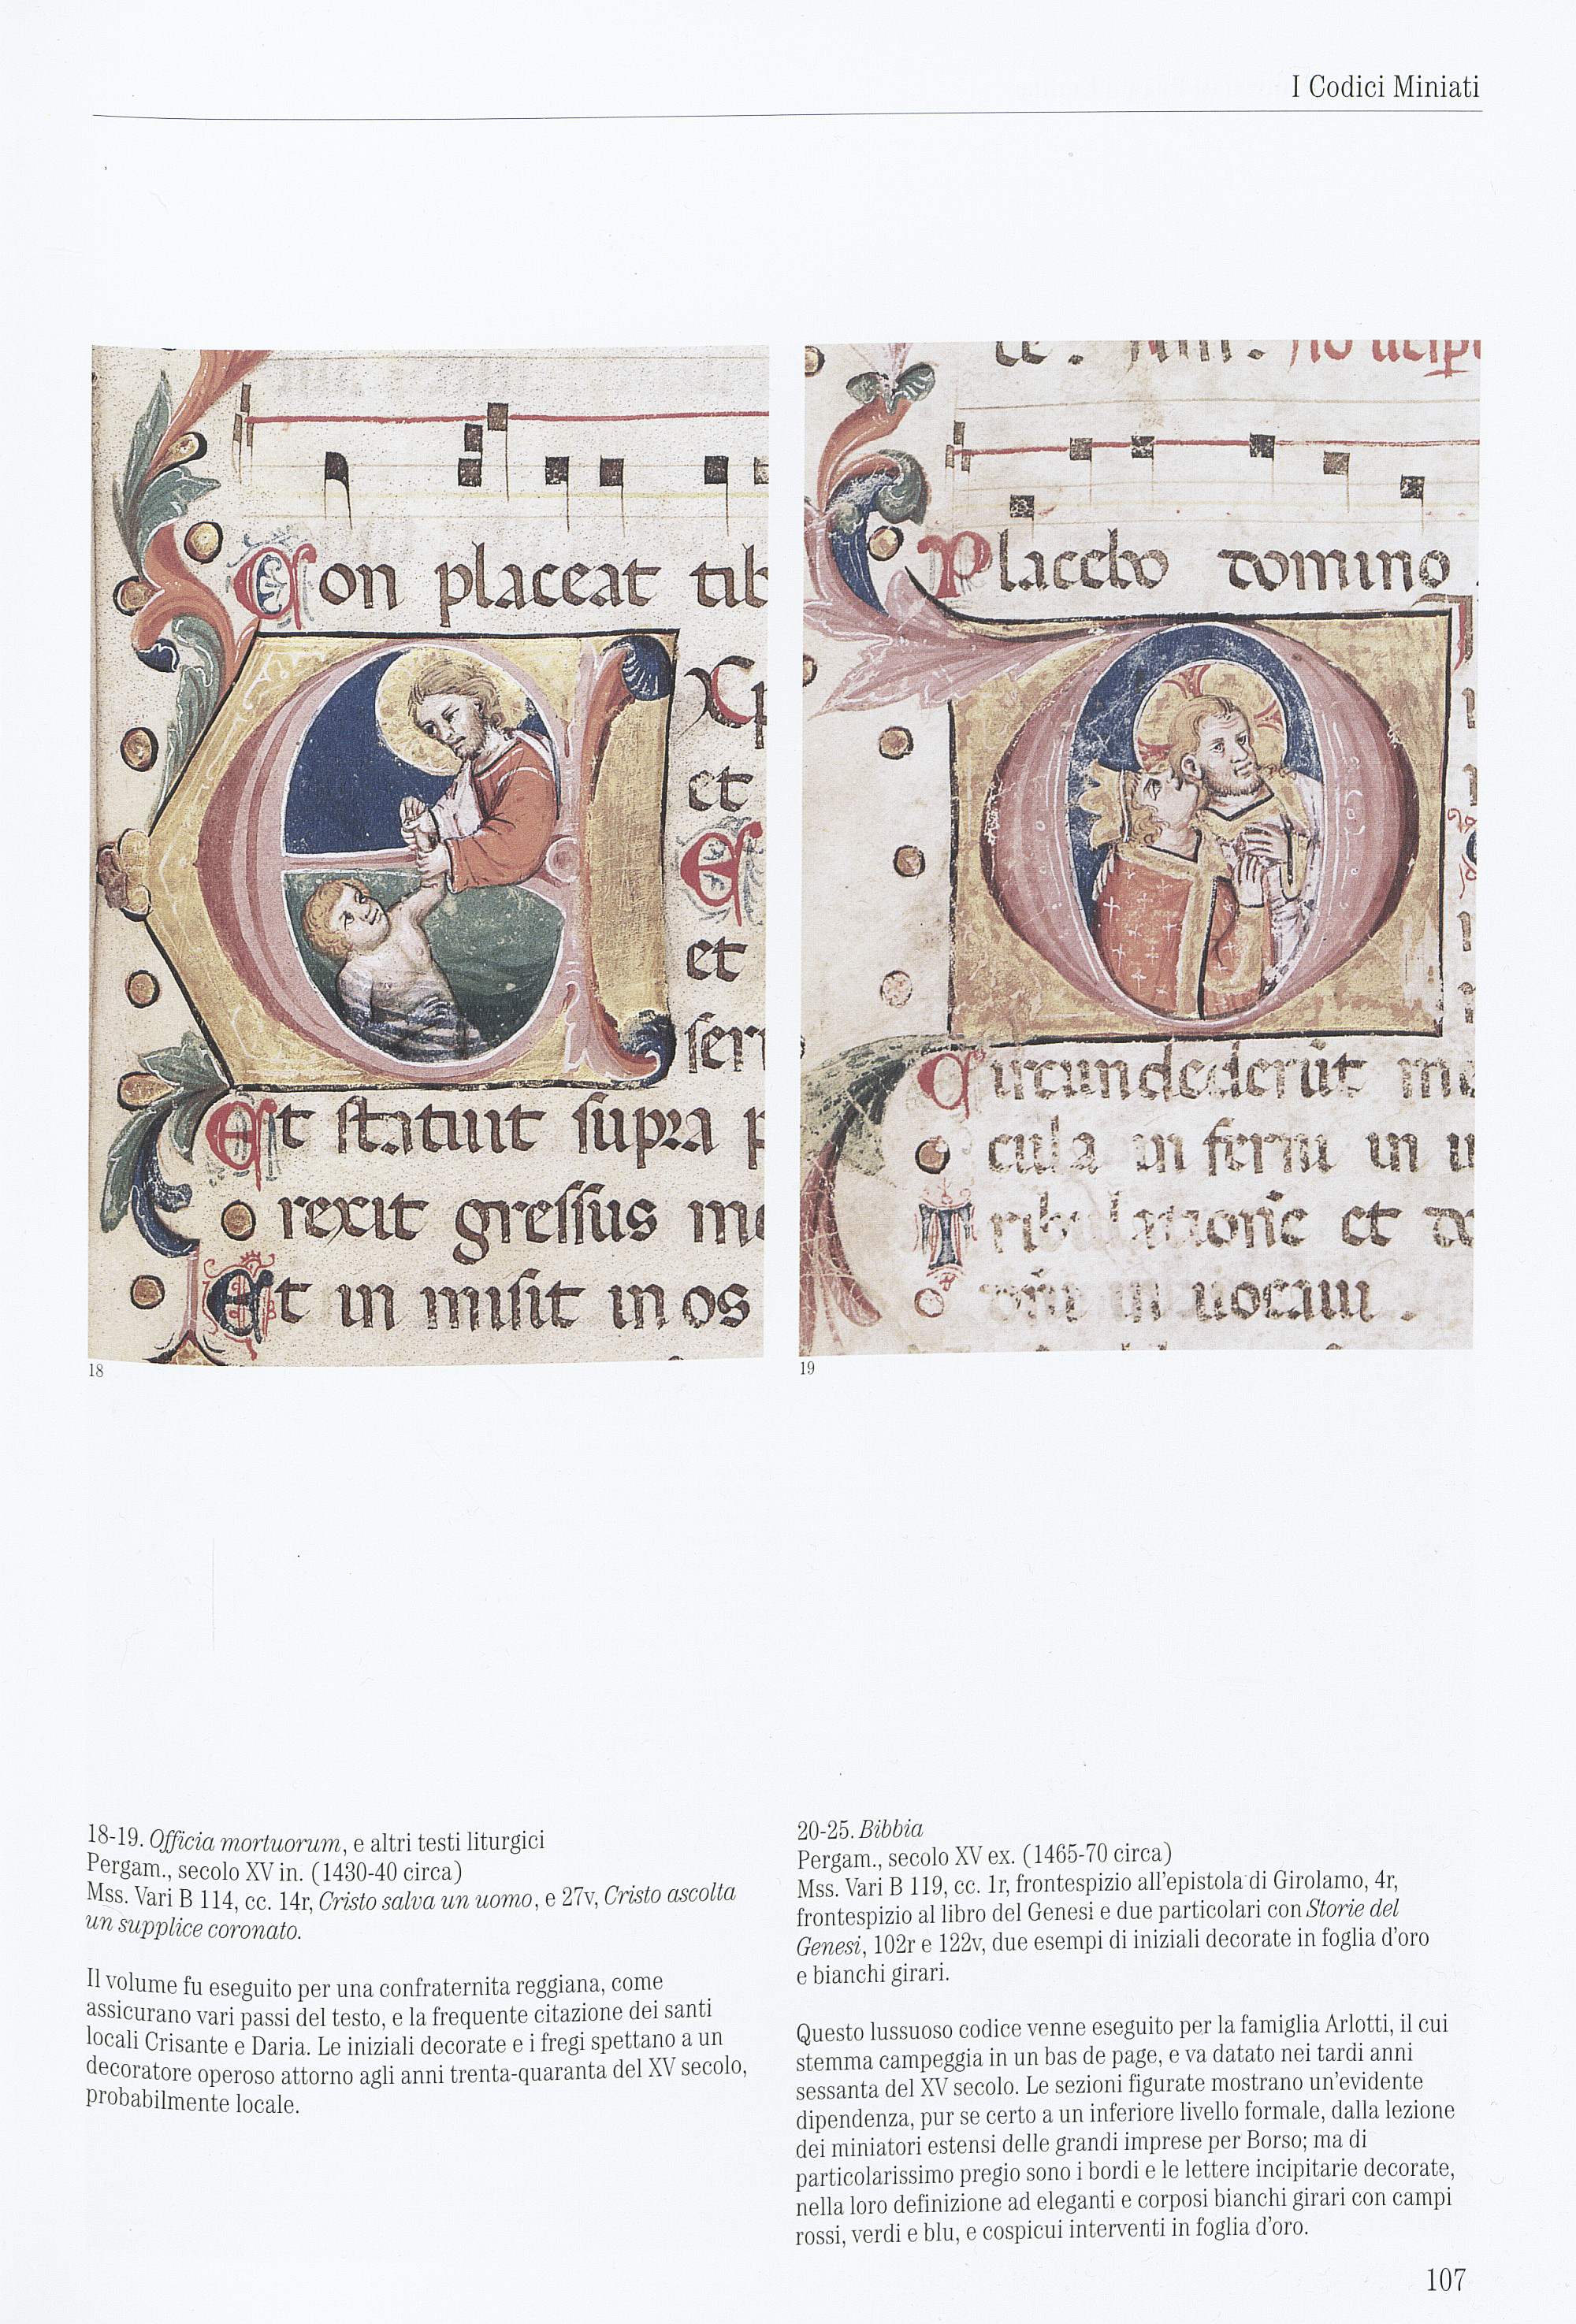 I Codici Miniati
on placeat tib
et
et
Et statuit supra p
rexit gressus me
Et in misit in os
Placebo domino
Circundederūt me
cula in ferni in
et
in uocaui .
18
19
18-19. Officia mortuorum, e altri testi liturgici
Pergam., secolo XV in. (1430-40 circa)
Mss. Vari B 114, cc. 14r, Cristo salva un uomo, e 27v, Cristo ascolta
un supplice coronato.
Il volume fu eseguito per una confraternita reggiana, come
assicurano vari passi del testo, e la frequente citazione dei santi
locali Crisante e Daria. Le iniziali decorate e i fregi spettano a un
decoratore operoso attorno agli anni trenta-quaranta del XV secolo,
probabilmente locale.
20-25. Bibbia
Pergam., secolo XV ex. (1465-70 circa)
Mss. Vari B 119, cc. 1r, frontespizio all'epistola di Girolamo, 4r,
frontespizio al libro del Genesi e due particolari con Storie del
Genesi, 102r e 122v, due esempi di iniziali decorate in foglia d'oro
e bianchi girari.
Questo lussuoso codice venne eseguito per la famiglia Arlotti, il cui
stemma campeggia in un bas de page, e va datato nei tardi anni
sessanta del XV secolo. Le sezioni figurate mostrano un'evidente
dipendenza, pur se certo a un inferiore livello formale, dalla lezione
dei miniatori estensi delle grandi imprese per Borso; ma di
particolarissimo pregio sono i bordi e le lettere incipitarie decorate,
nella loro definizione ad eleganti e corposi bianchi girari con campi
rossi, verdi e blu, e cospicui interventi in foglia d'oro.
107